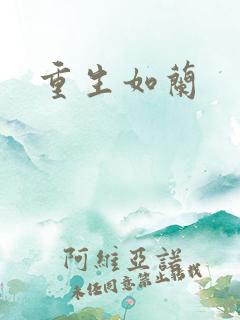 重生如蘭
阿維亞諾
未任同意禁止轉載